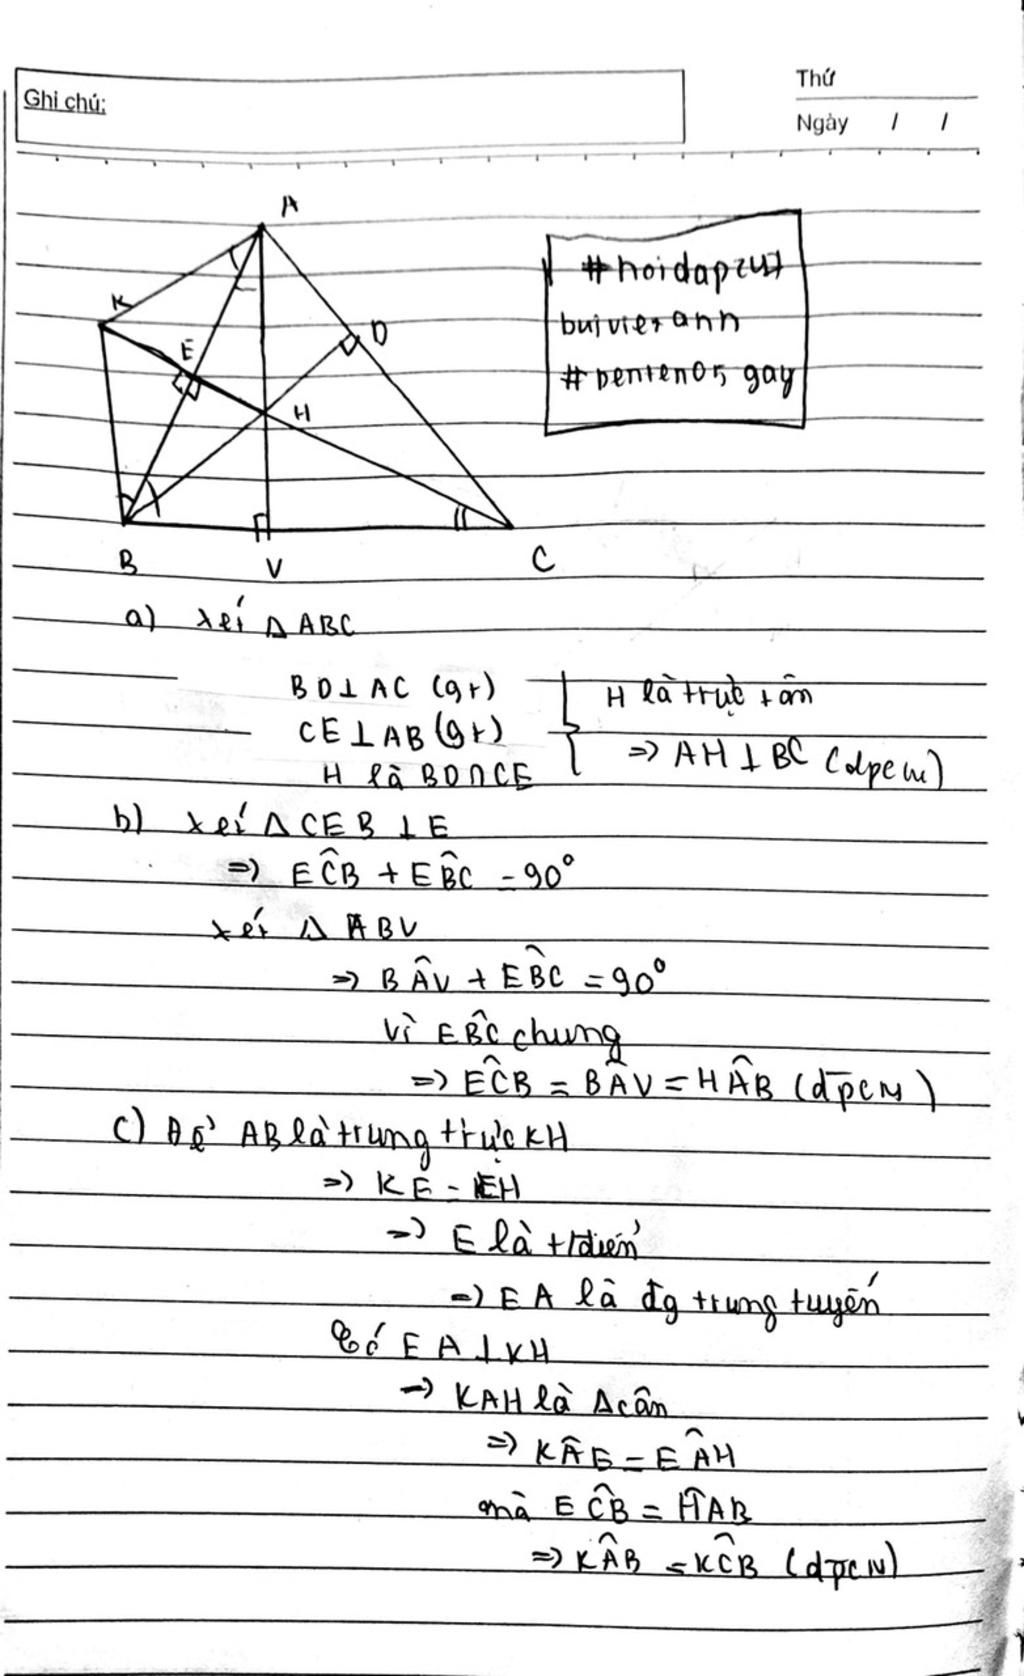 Ghi chú:
Thứ
Ngày / /
A
K
E
D
H
B
V
C
#hoidap247
bui viet anh
gay
a) xét Δ ABC
BD⊥AC (gt)
CE⊥AB (gt)
H là BD∩CE
H là trực tâm
=> AH⊥BC (đpcm)
b) xét Δ CEB ⊥ E
=> EĈB + EB̂C = 90°
xét Δ ABV
=> BÂV + EB̂C = 90°
vì EB̂C chung
=> EĈB = BÂV = HÂB (đpcm)
c) AB là trung trực KH
=> KE = EH
=> E là
=> EA là đg trung tuyến
Có EA⊥KH
=> KAH là Δ cân
=> KÂE = EÂH
mà EĈB = HÂB
=> KÂB = KĈB (đpcm)